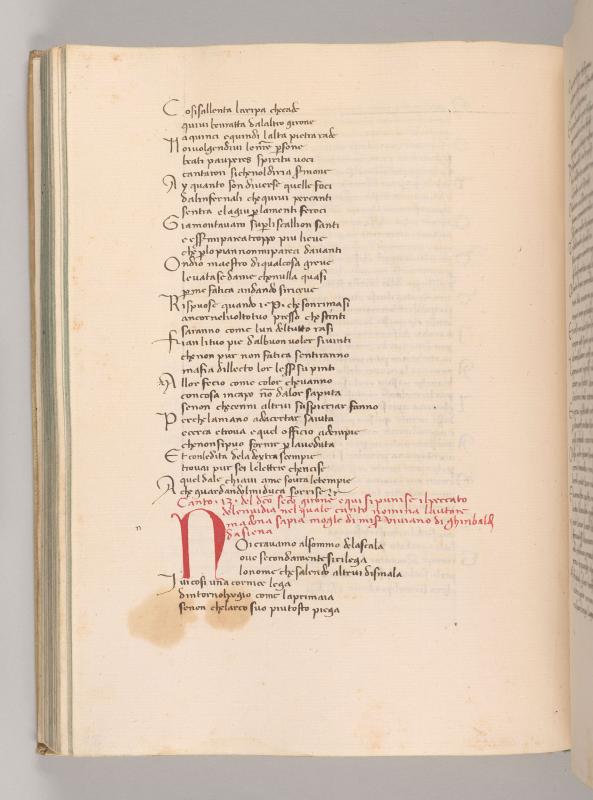 C osisallenta laripa checade
quivi benratta dalaltro girone
ma quinci equindi lalta pietra rade
N oivolgendivi lenrē persone
beati pauperes spiritu voci
cantaron si chenol diria sermone
A y quanto son diverse quelle foci
dalinfernali che quivi percanti
sentra elagiu plamenti feroci
G ia montavam su pli scallion santi
e essr mi parea troppo piu lieve
che plo pian non mi parea davanti
O ndio maestro di qual cosa greve
levata se dame che nulla quasi
p me fatica andando si riceve
R ispuose quando i .P. che son rimasi
ancor nel volto tuo presso che stinti
saranno come lun del tutto rasi
F ian li tuo pie dal buon voler si vinti
che non pur non fatica sentiranno
ma fia dillecto lor esser su pinti
A llor fecio come color che vanno
con cosa in capo nō da lor saputa
se non che cenni altrui suspicciar fanno
P er che la mano adacertar saiuta
e cerca e trova e quel officio adempie
che non si puo fornir p la veduta
E t con le dita de la dextra scempie
trovai pur sei le lettere che ncise
quel dale chiavi ame soura le tempie
A che guardando il mi duca sorrise
Canto . 13 . del dco secō girone equi si punise il peccato
de lenvidia nel quale canto nomina lautare
madōna sapia mogle di misr viviano di ghinibald
da siena
n
N Oi eravamo al sommo de la scala
ove secondamente si rilega
lo nome che salendo altrui dismala
I vi cosi una cornice lega
dintorno il pogio come la primaia
se non che larco suo piu tosto piega